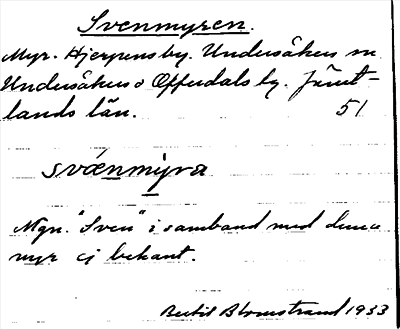 Svenmyren.
Myr. Hjerpens by. Undersåkers sn
Undersåkers o Offerdals by. Jämt-
lands län. 51
svænmy̱ra
Mgn. "Sven" i samband med denna
myr ej bekant.
Bertil Blomstrand 1933